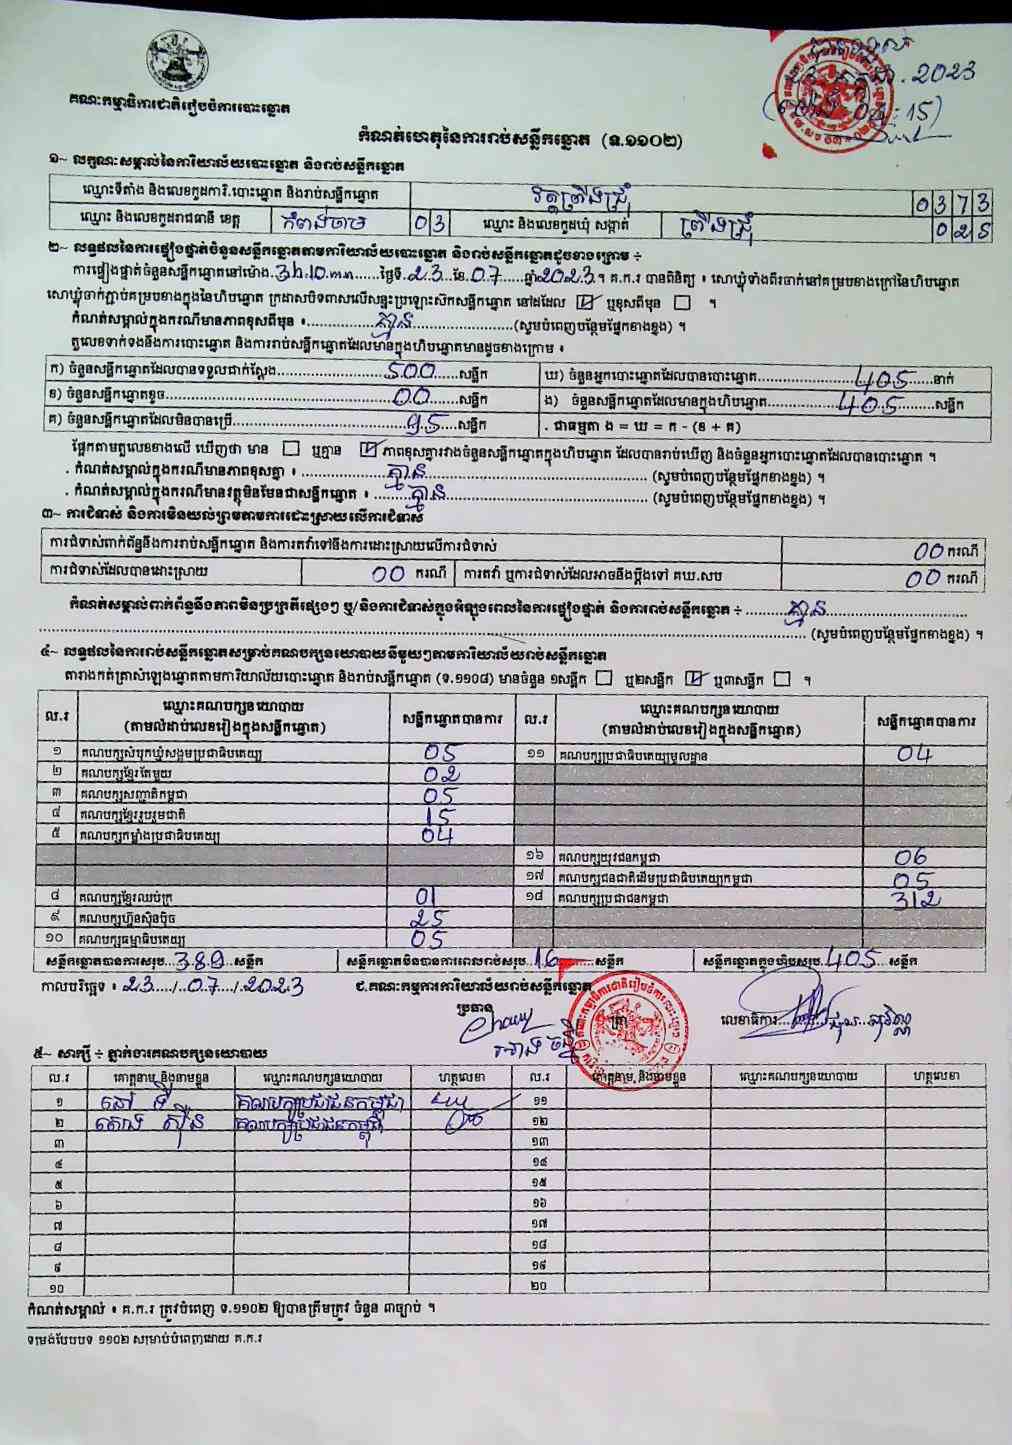 គណៈកម្មាធិការជាតិរៀបចំការបោះឆ្នោត
2023
04:15
កំណត់ហេតុនៃការរាប់សន្លឹកឆ្នោត (ទ.១១០២)
១~ លក្ខណៈសម្គាល់នៃការិយាល័យបោះឆ្នោត និងរាប់សន្លឹកឆ្នោត
ឈ្មោះទីតាំង និងលេខកូដការិ.បោះឆ្នោត និងរាប់សន្លឹកឆ្នោត វត្តព្រីងជ្រុំ 0373
ឈ្មោះ និងលេខកូដរាជធានី ខេត្ត កំពង់ចាម 03 ឈ្មោះ និងលេខកូដឃុំ សង្កាត់ ព្រីងជ្រុំ 025
២~ លទ្ធផលនៃការផ្ទៀងផ្ទាត់ចំនួនសន្លឹកឆ្នោតតាមការិយាល័យបោះឆ្នោត និងរាប់សន្លឹកឆ្នោតដូចខាងក្រោម ៖
ការផ្ទៀងផ្ទាត់ចំនួនសន្លឹកឆ្នោតនៅម៉ោង.3h.10.mn.......ថ្ងៃទី..23..ខែ.07......ឆ្នាំ2023.។ គ.ក.រ បានពិនិត្យ ៖ សោឃ្លុំទាំងពីរចាក់នៅគម្របខាងក្រៅនៃហិបឆ្នោត
សោឃ្លុំចាក់ភ្ជាប់គម្របខាងក្នុងនៃហិបឆ្នោត ក្រដាសបិទពាសលើសន្ទះប្រឡោះស៊កសន្លឹកឆ្នោត នៅដដែល ☑ ឬខុសពីមុន ☐ ។
កំណត់សម្គាល់ក្នុងករណីមានភាពខុសពីមុន ៖..............គ្មាន......................(សូមបំពេញបន្ថែមផ្នែកខាងខ្នង) ។
តួលេខទាក់ទងនឹងការបោះឆ្នោត និងការរាប់សន្លឹកឆ្នោតដែលមានក្នុងហិបឆ្នោតមានដូចខាងក្រោម ៖
ក) ចំនួនសន្លឹកឆ្នោតដែលបានទទួលជាក់ស្តែង......................500.....សន្លឹក ឃ) ចំនួនអ្នកបោះឆ្នោតដែលបានបោះឆ្នោត....................405.....នាក់
ខ) ចំនួនសន្លឹកឆ្នោតខូច..............................................00......សន្លឹក ង) ចំនួនសន្លឹកឆ្នោតដែលមានក្នុងហិបឆ្នោត..............405..........សន្លឹក
គ) ចំនួនសន្លឹកឆ្នោតដែលមិនបានប្រើ..................................95....សន្លឹក . ជាធម្មតា ង = ឃ = ក - (ខ + គ)
ផ្អែកតាមតួលេខខាងលើ ឃើញថា មាន ☐ ឬគ្មាន ☑ ភាពខុសគ្នារវាងចំនួនសន្លឹកឆ្នោតក្នុងហិបឆ្នោត ដែលបានរាប់ឃើញ និងចំនួនអ្នកបោះឆ្នោតដែលបានបោះឆ្នោត ។
. កំណត់សម្គាល់ក្នុងករណីមានភាពខុសគ្នា ៖ ..................គ្មាន...................................... (សូមបំពេញបន្ថែមផ្នែកខាងខ្នង) ។
. កំណត់សម្គាល់ក្នុងករណីមានវត្ថុមិនមែនជាសន្លឹកឆ្នោត ៖ ........គ្មាន.................................. (សូមបំពេញបន្ថែមផ្នែកខាងខ្នង) ។
៣~ ការជំទាស់ និងការមិនយល់ព្រមតាមការដោះស្រាយលើការជំទាស់
ការជំទាស់ពាក់ព័ន្ធនឹងការរាប់សន្លឹកឆ្នោត និងការតវ៉ាទៅនឹងការដោះស្រាយលើការជំទាស់ 00 ករណី
ការជំទាស់ដែលបានដោះស្រាយ 00 ករណី ការតវ៉ា ឬការជំទាស់ដែលអាចនឹងប្តឹងទៅ គឃ.សប 00 ករណី
កំណត់សម្គាល់ពាក់ព័ន្ធនឹងភាពមិនប្រក្រតីផ្សេងៗ ឬ/និងការជំទាស់ក្នុងអំឡុងពេលនៃការផ្ទៀងផ្ទាត់ និងការរាប់សន្លឹកឆ្នោត ៖ ........គ្មាន..............................
.................................................................................................................................. (សូមបំពេញបន្ថែមផ្នែកខាងខ្នង) ។
៤~ លទ្ធផលនៃការរាប់សន្លឹកឆ្នោតសម្រាប់គណបក្សនយោបាយនីមួយៗតាមការិយាល័យរាប់សន្លឹកឆ្នោត
តារាងកត់ត្រាសំឡេងឆ្នោតតាមការិយាល័យបោះឆ្នោត និងរាប់សន្លឹកឆ្នោត (ទ.១១០៨) មានចំនួន ១សន្លឹក ☐ ឬ២សន្លឹក ☑ ឬ៣សន្លឹក ☐ ។
ល.រ ឈ្មោះគណបក្សនយោបាយ (តាមលំដាប់លេខរៀងក្នុងសន្លឹកឆ្នោត) សន្លឹកឆ្នោតបានការ ល.រ ឈ្មោះគណបក្សនយោបាយ (តាមលំដាប់លេខរៀងក្នុងសន្លឹកឆ្នោត) សន្លឹកឆ្នោតបានការ
១ គណបក្សសំបុកឃ្មុំសង្គមប្រជាធិបតេយ្យ 05 ១១ គណបក្សប្រជាធិបតេយ្យមូលដ្ឋាន 04
២ គណបក្សខ្មែរតែមួយ 02
៣ គណបក្សសញ្ជាតិកម្ពុជា 05
៤ គណបក្សខ្មែររួបរួមជាតិ 15
៥ គណបក្សកម្លាំងប្រជាធិបតេយ្យ 04
១៦ គណបក្សយុវជនកម្ពុជា 06
១៧ គណបក្សជនជាតិដើមប្រជាធិបតេយ្យកម្ពុជា 05
៨ គណបក្សខ្មែរឈប់ក្រ 01 ១៨ គណបក្សប្រជាជនកម្ពុជា 312
៩ គណបក្សហ្វ៊ុនស៊ិនប៉ិច 25
១០ គណបក្សធម្មាធិបតេយ្យ 05
សន្លឹកឆ្នោតបានការសរុប...389...សន្លឹក សន្លឹកឆ្នោតមិនបានការពេលរាប់សរុប.16........សន្លឹក សន្លឹកឆ្នោតក្នុងហិបសរុប..405...សន្លឹក
កាលបរិច្ឆេទ ៖ 23..../..07..../.2023 ជ.គណៈកម្មការការិយាល័យរាប់សន្លឹកឆ្នោត
ប្រធាន ត្រា លេខាធិការ
៥~ សាក្សី ៖ ភ្នាក់ងារគណបក្សនយោបាយ
ល.រ គោត្តនាម និងនាមខ្លួន ឈ្មោះគណបក្សនយោបាយ ហត្ថលេខា ល.រ គោត្តនាម និងនាមខ្លួន ឈ្មោះគណបក្សនយោបាយ ហត្ថលេខា
១ នៅ ទី គណបក្សប្រជាជនកម្ពុជា ១១
២ តោង ស៊ីន គណបក្សប្រជាជនកម្ពុជា ១២
៣ ១៣
៤ ១៤
៥ ១៥
៦ ១៦
៧ ១៧
៨ ១៨
៩ ១៩
១០ ២០
កំណត់សម្គាល់ ៖ គ.ក.រ ត្រូវបំពេញ ទ.១១០២ ឱ្យបានត្រឹមត្រូវ ចំនួន ៣ច្បាប់ ។
ទម្រង់បែបបទ ១១០២ សម្រាប់បំពេញដោយ គ.ក.រ